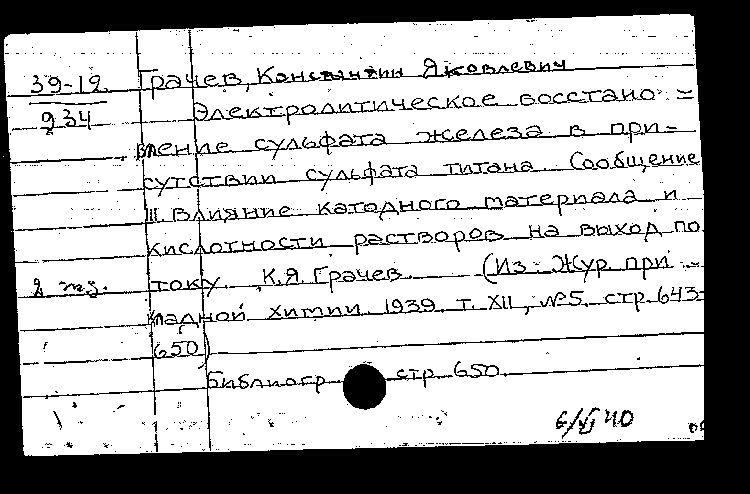 39-12 Грачев, Константин Яковлевич
934 Электролитическое восстано-
вление сульфата железа в при-
сутствии сульфата титана Сообщение
III. Влияние катодного материала и
кислотности растворов на выход по
2 экз. току. К.Я. Грачев. (Из Жур. при-
кладной химии. 1939. т. XII, №5. стр. 643-
650)
Библиогр стр. 650.
6/VI 40